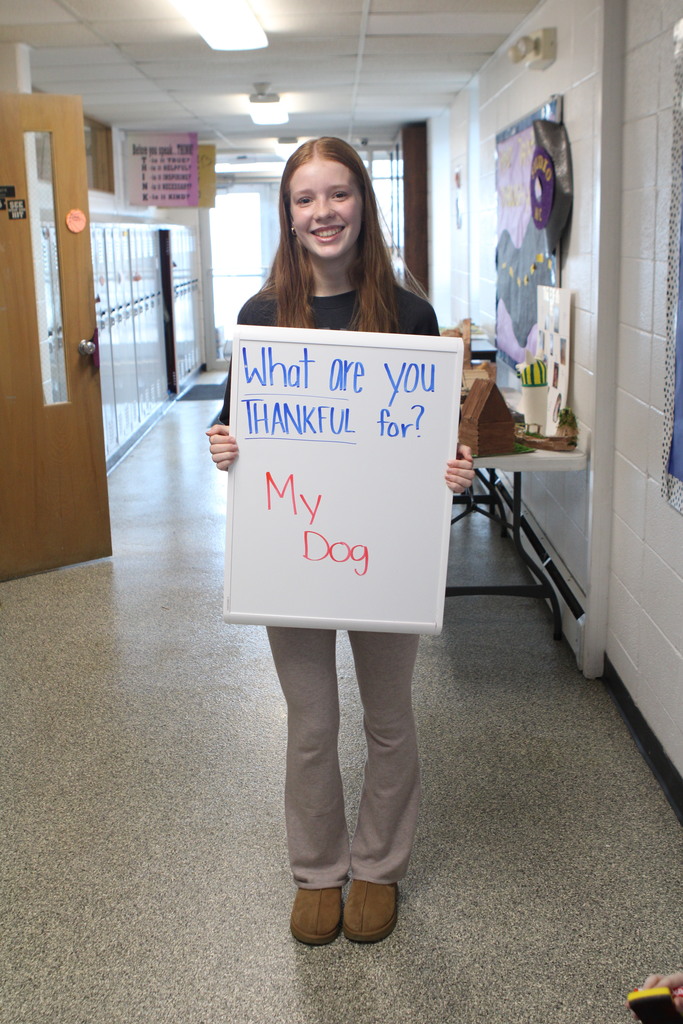 Before you speak... THINK
T - is it TRUE?
H - is it HELPFUL?
I - is it INSPIRING?
N - is it NECESSARY?
K - is it KIND?
What are you
THANKFUL for?
My
Dog